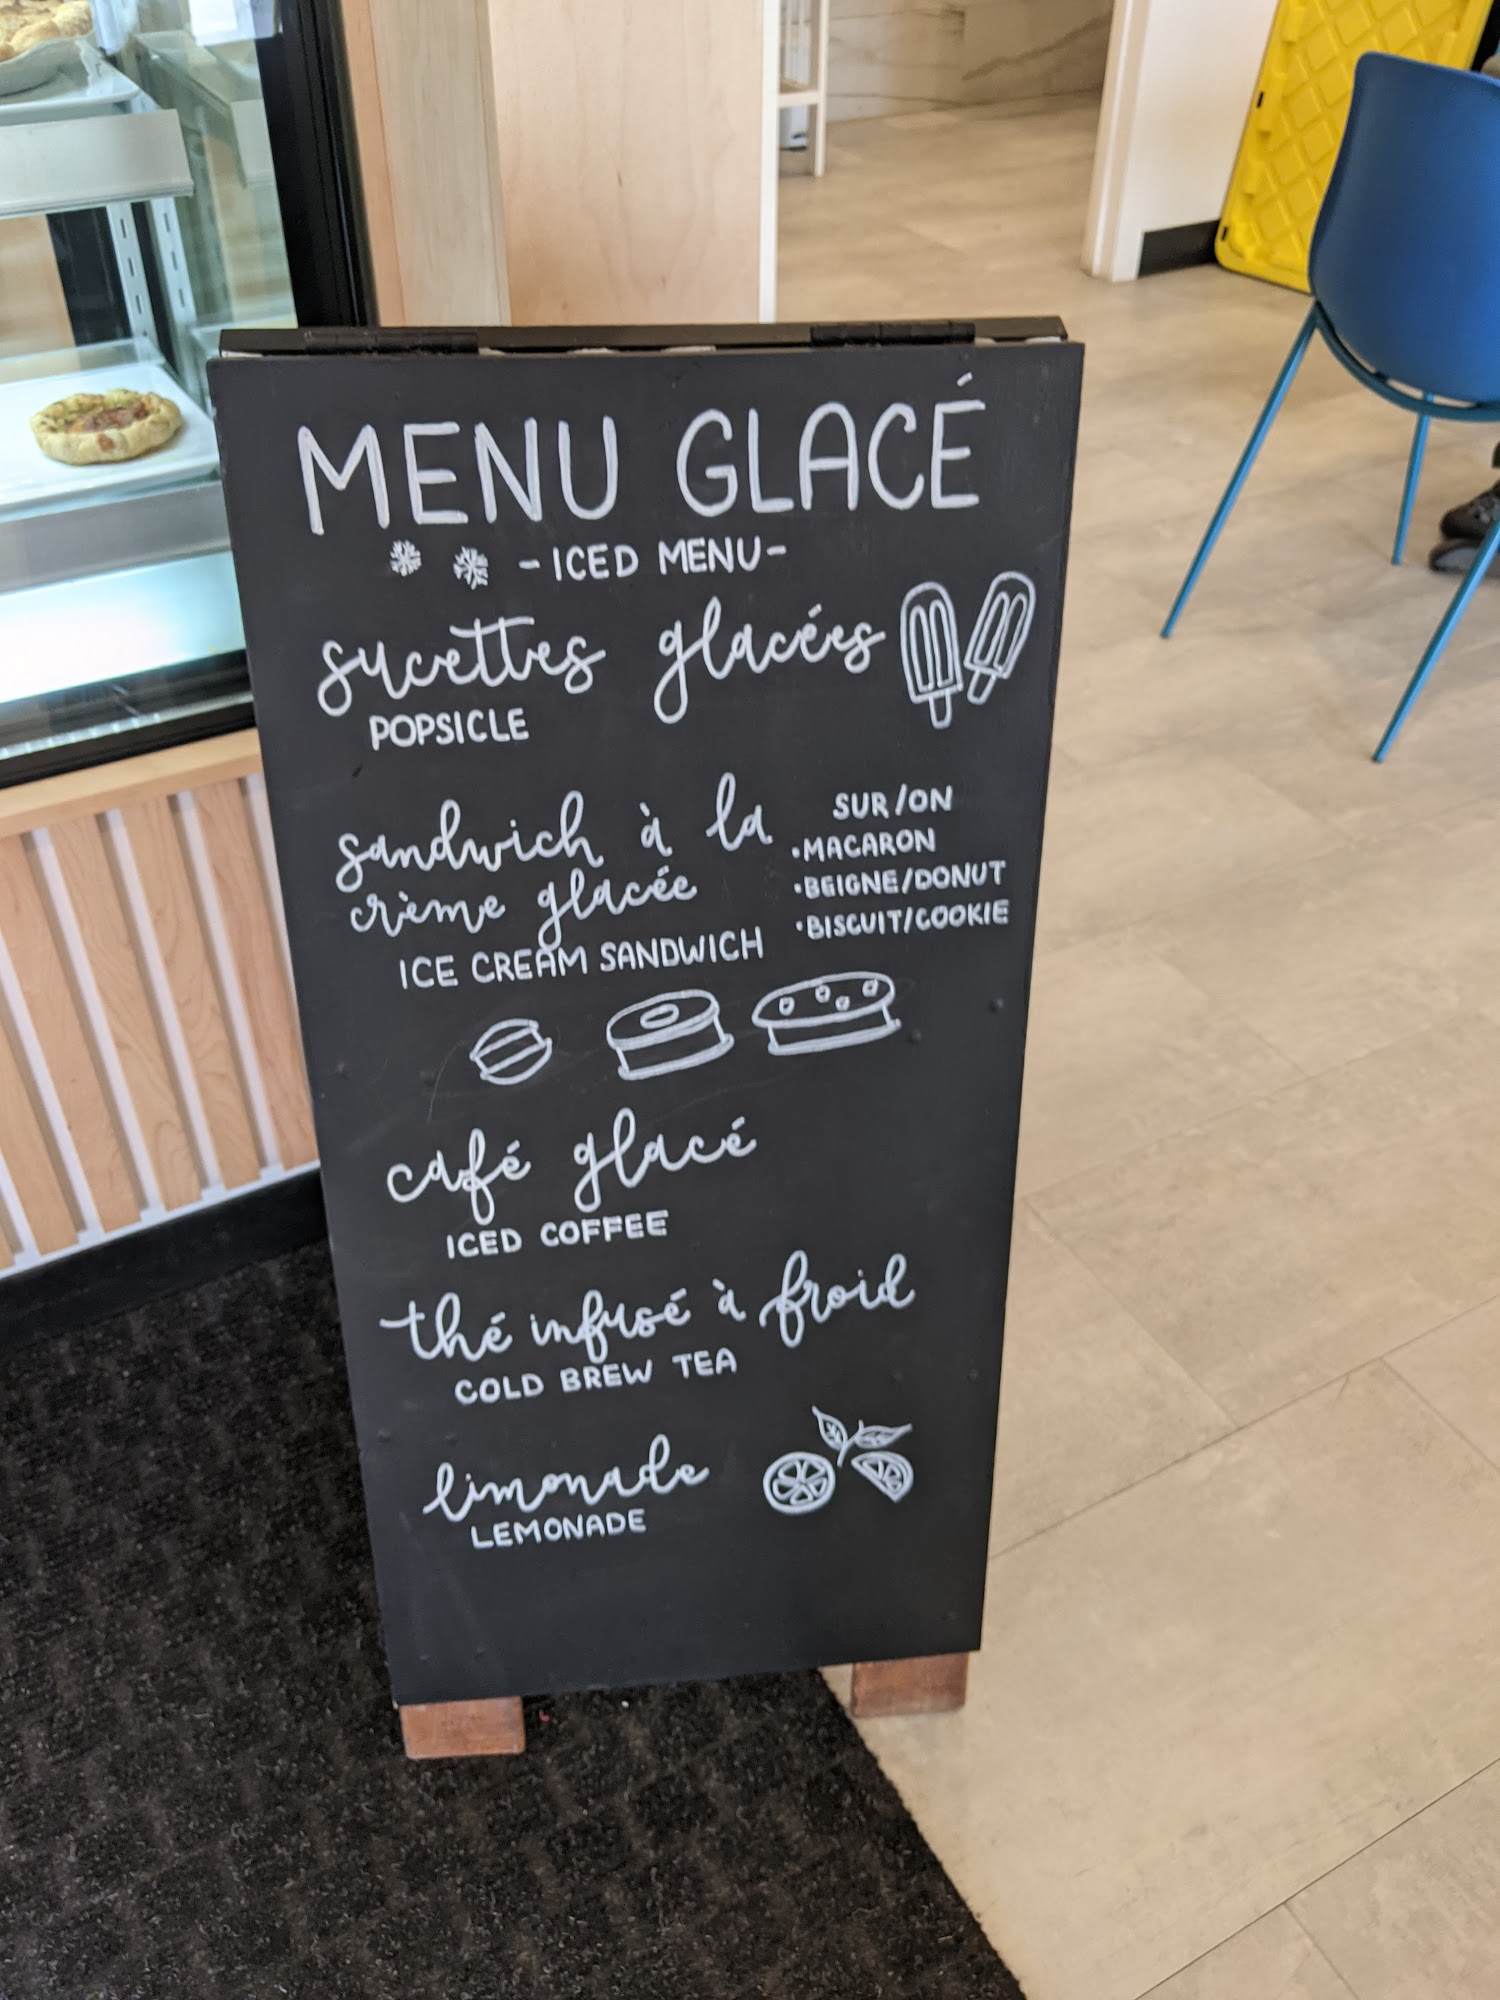 MENU GLACÉ
-ICED MENU-
sucettes glacées
POPSICLE
sandwich à la
crème glacée
ICE CREAM SANDWICH
SUR/ON
•MACARON
•BEIGNE/DONUT
•BISCUIT/COOKIE
café glacé
ICED COFFEE
thé infusé à froid
COLD BREW TEA
limonade
LEMONADE